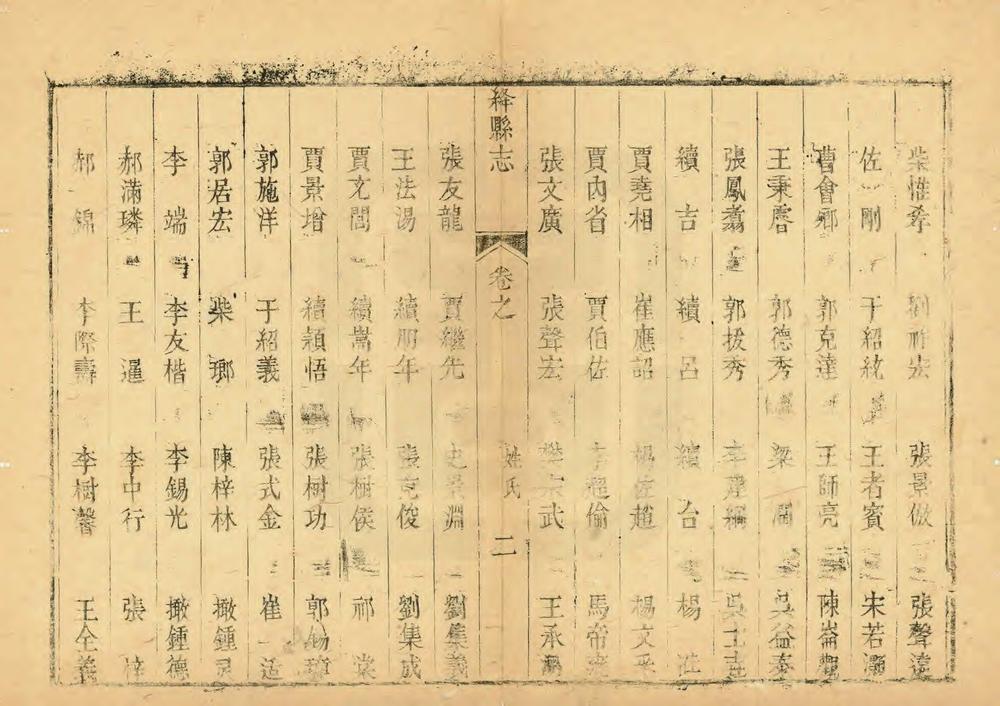 柴惟孝 劉祚宏 張景倣 張聲遠
佐 剛 于紹紘 王者賓 宋若灝
曹會鄉 郭克達 王師亮 陳崙
王秉磨 郭德秀 梁 周 吳益泰
張鳳翥 郭拔秀 李建綱 吳士
續 吉 續 呂 續 台 楊
賈堯相 崔應詔 楊佐趙 楊文
賈內省 賈伯佐 超倫 馬帝
張文廣 張聲宏 樊宗武 王承
絳縣志 卷之 姓氏 二
張友龍 賈繼先 史景淵 劉集義
王法湯 續朋年 張克俊 劉集成
賈文閭 續嵩年 張樹侯 祁 棠
賈景增 續穎悟 張樹功 郭錫璋
郭施洋 于紹義 張式金 崔 适
郭居宏 柴 瑯 陳梓林 撖鍾灵
李 端 李友楷 李錫光 撖鍾德
郝滿璘 王 暹 李中行 張 梓
郝 錦 李際壽 李樹馨 王全義